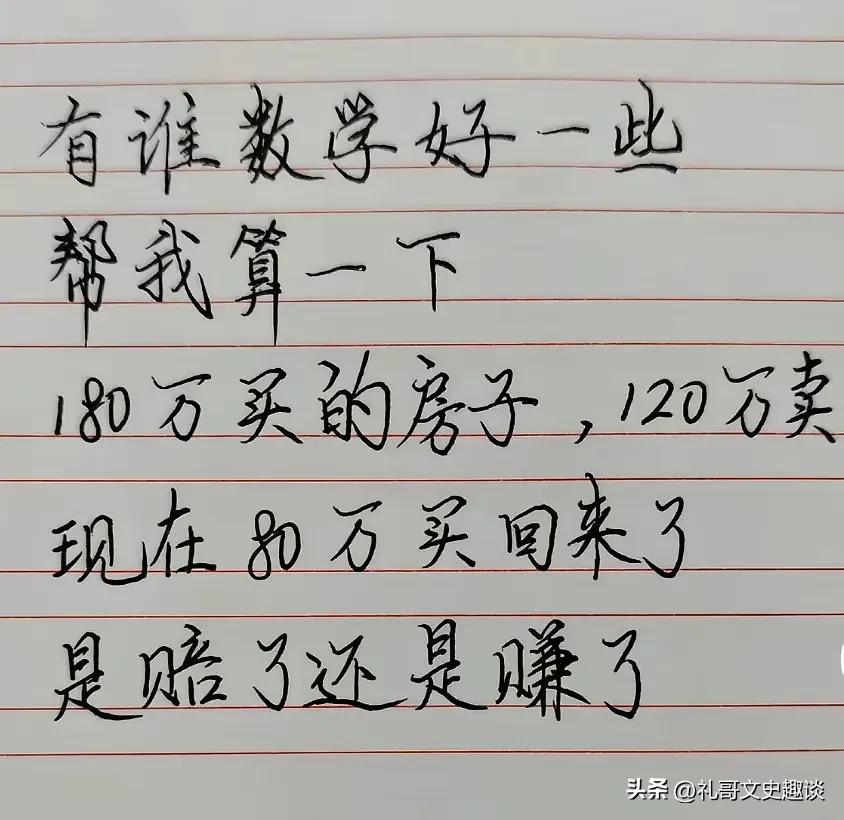 有谁数学好一些
帮我算一下
180万买的房子,120万卖
现在80万买回来了
是赔了还是赚了
头条 @礼哥文史趣谈